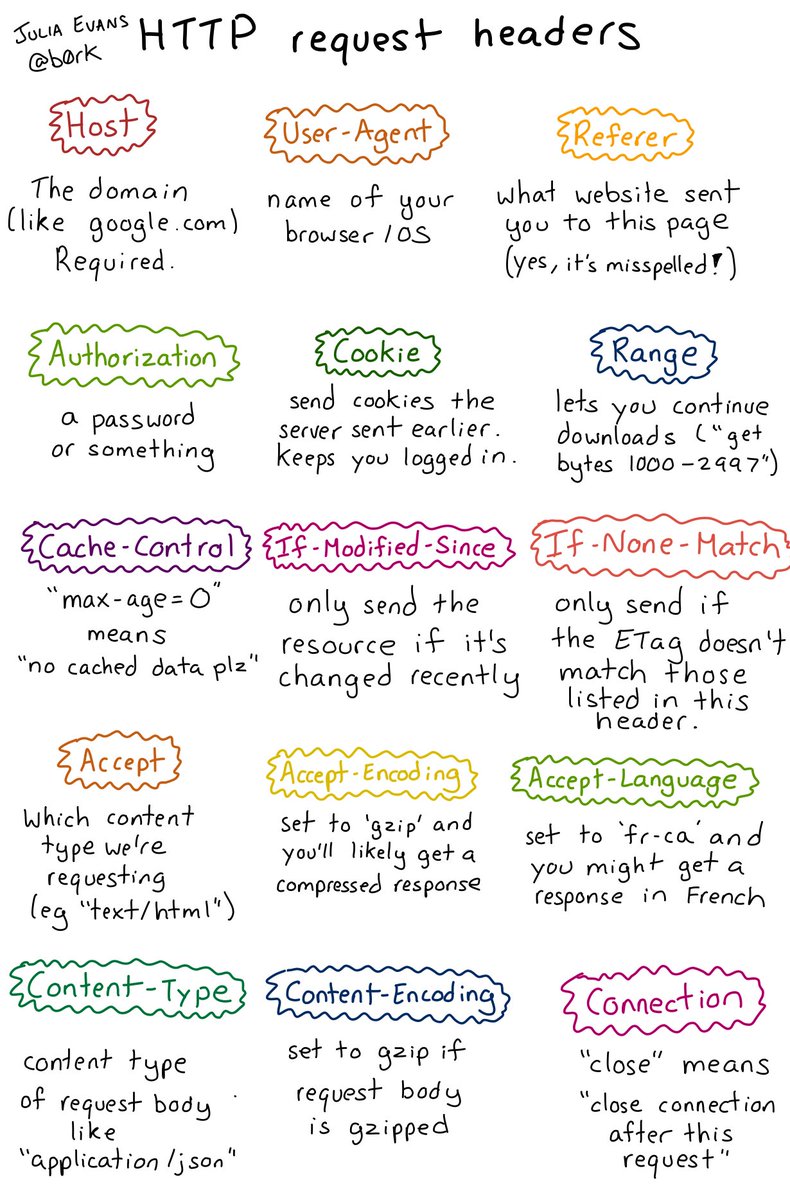 JULIA EVANS
@b0rk
HTTP request headers
Host
The domain
(like google.com)
Required.
User-Agent
name of your
browser/OS
Referer
what website sent
you to this page
(yes, it's misspelled!)
Authorization
a password
or something
Cookie
send cookies the
server sent earlier.
keeps you logged in.
Range
lets you continue
downloads ("get
bytes 1000-2997")
Cache-Control
"max-age=0"
means
"no cached data plz"
If-Modified-Since
only send the
resource if it's
changed recently
If-None-Match
only send if
the ETag doesn't
match those
listed in this
header.
Accept
which content
type we're
requesting
(eg "text/html")
Accept-Encoding
set to 'gzip' and
you'll likely get a
compressed response
Accept-Language
set to 'fr-ca' and
you might get a
response in French
Content-Type
content type
of request body
like
"application/json"
Content-Encoding
set to gzip if
request body
is gzipped
Connection
"close" means
"close connection
after this
request"